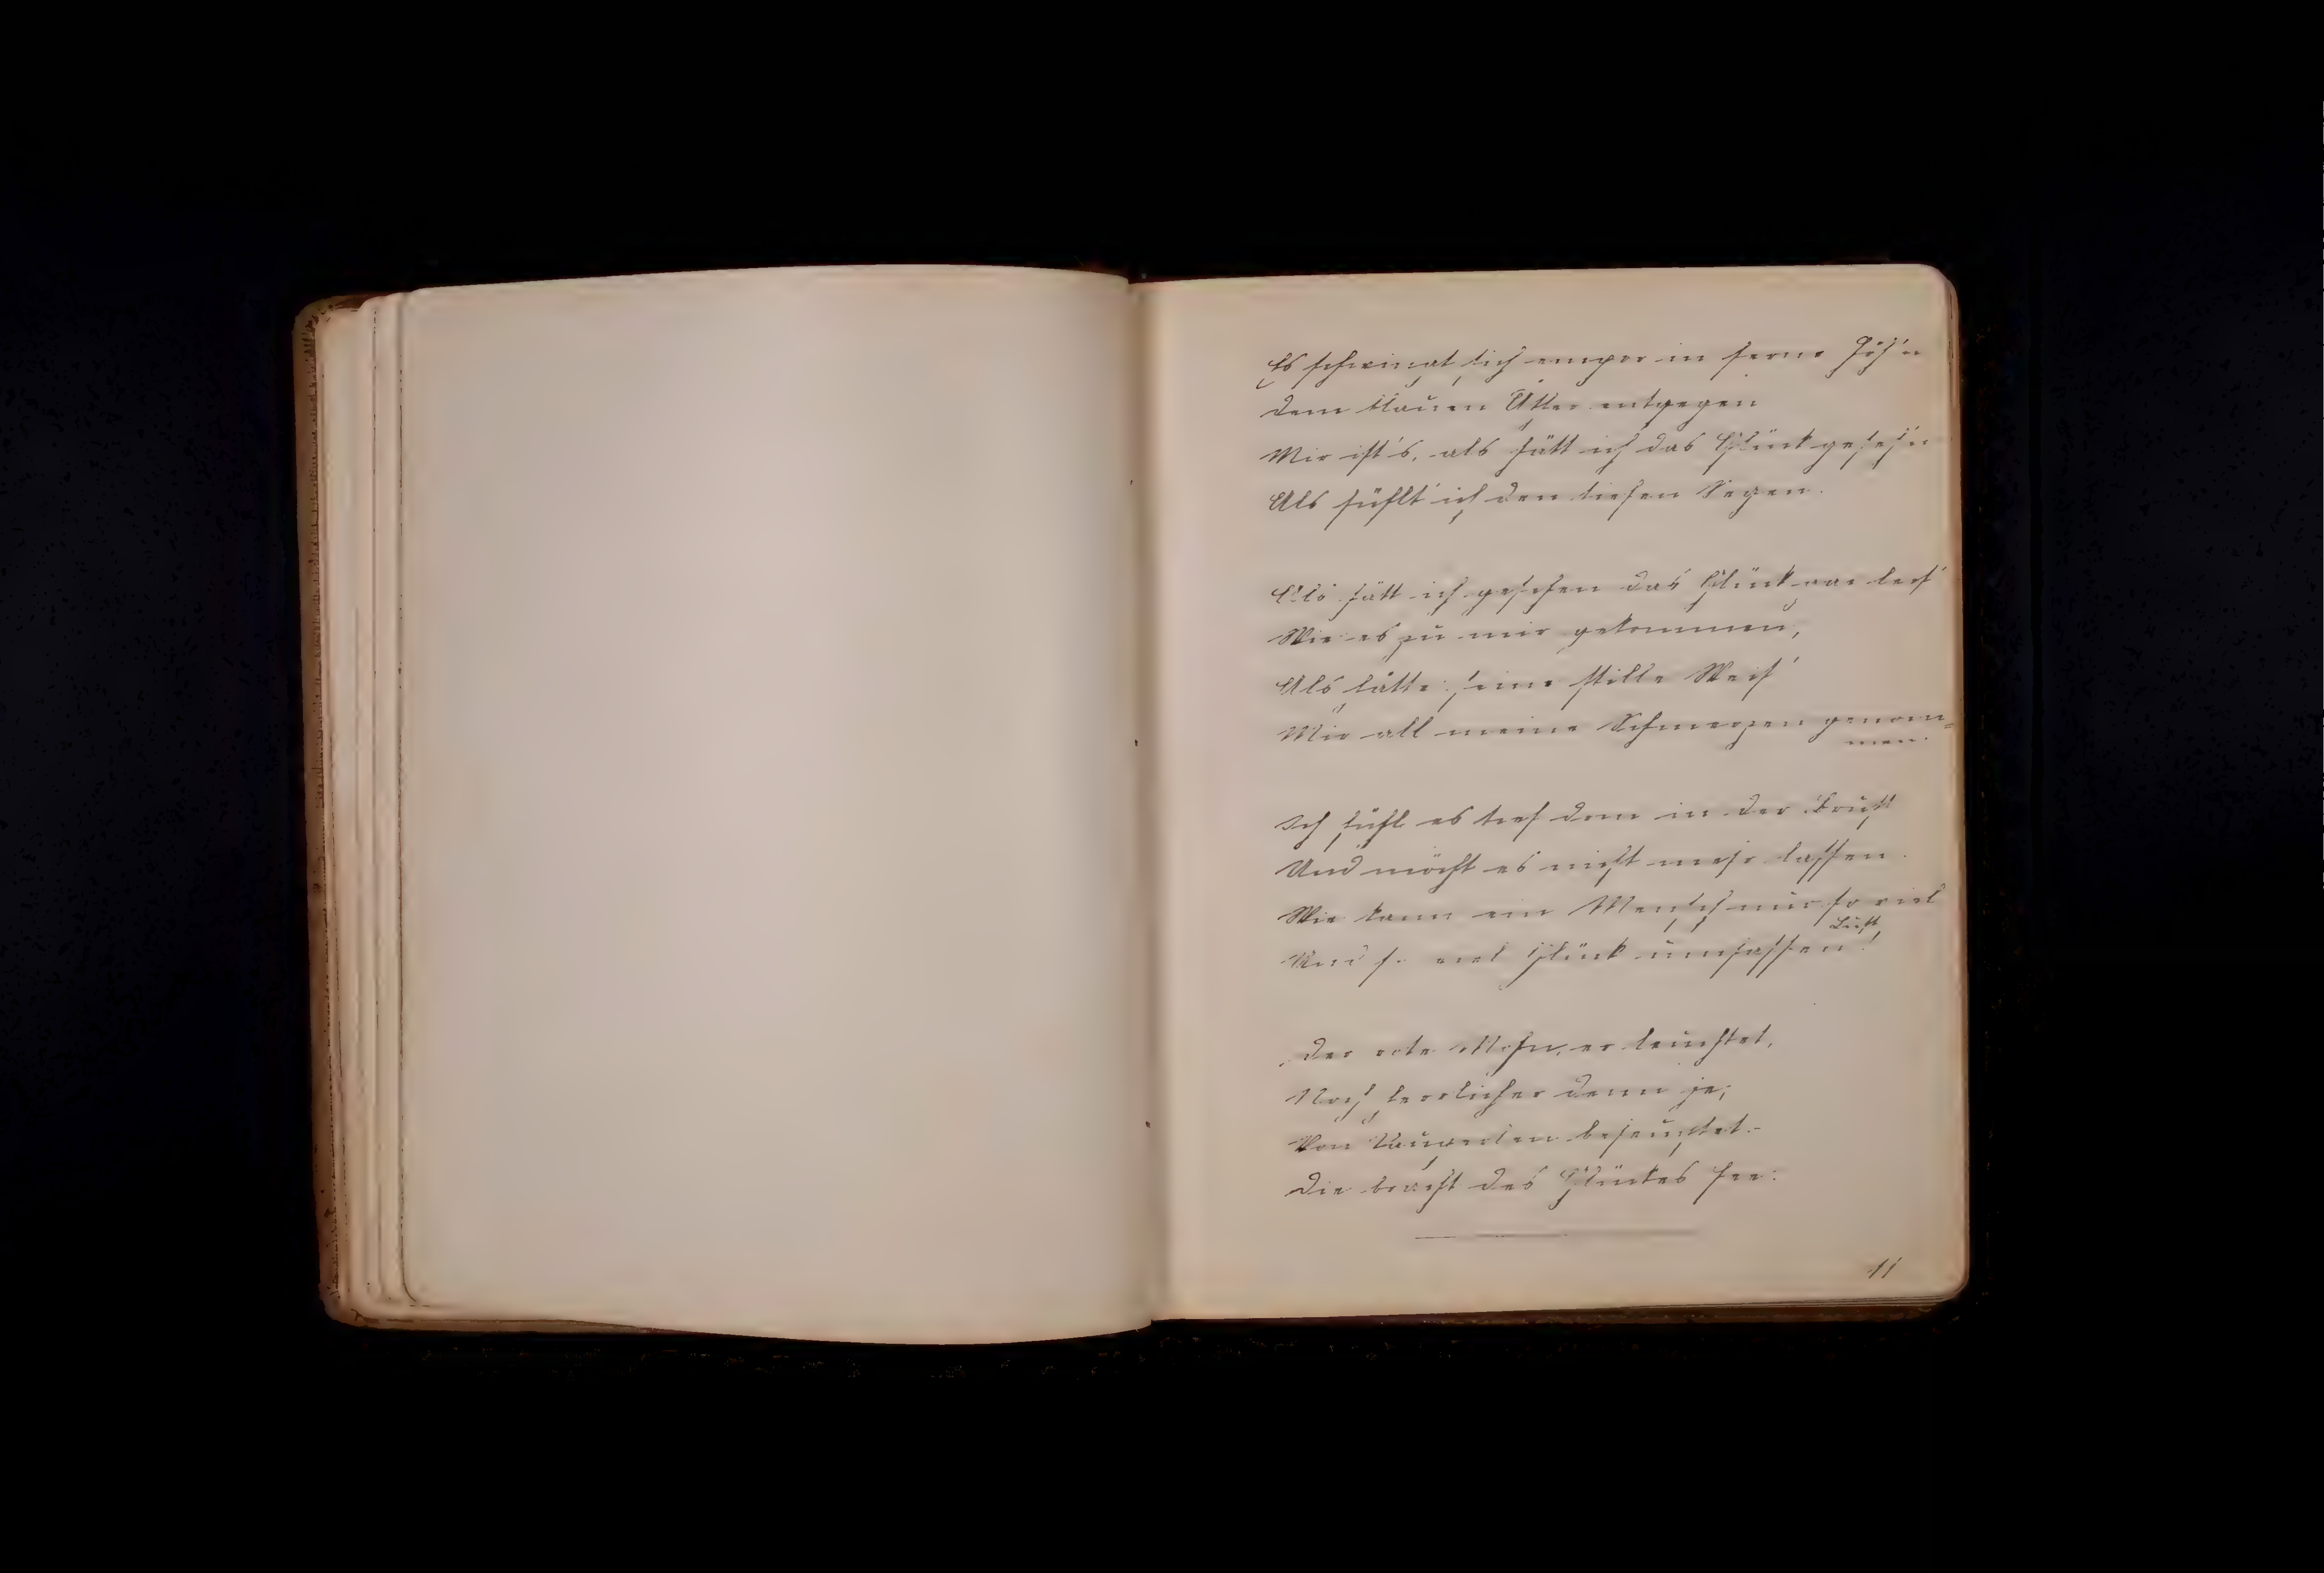 Es schwingt sich empor in ferne Höh'n
Dem blauen Äther entgegen
Mir ist's, als hätt ich das Glück geseh'n
Als fühlt' ich den tiefen Segen.
Als hätt ich gesehen das Glück war leis'
Wie es zu mir gekommen,
Als hätte seine stille Weis'
Mir all meine Schmerzen genom=
men.
Ich fühl es tief drin in der Brust
Und möcht es nicht mehr lassen.
Wie kann ein Mensch nur so viel
Lust,
Und so viel Glück umfassen!
Der rote Mohn, er leuchtet,
Noch herrlicher denn je;
Von Tauperlen befeuchtet.-
Die bracht des Glückes Fee.
11